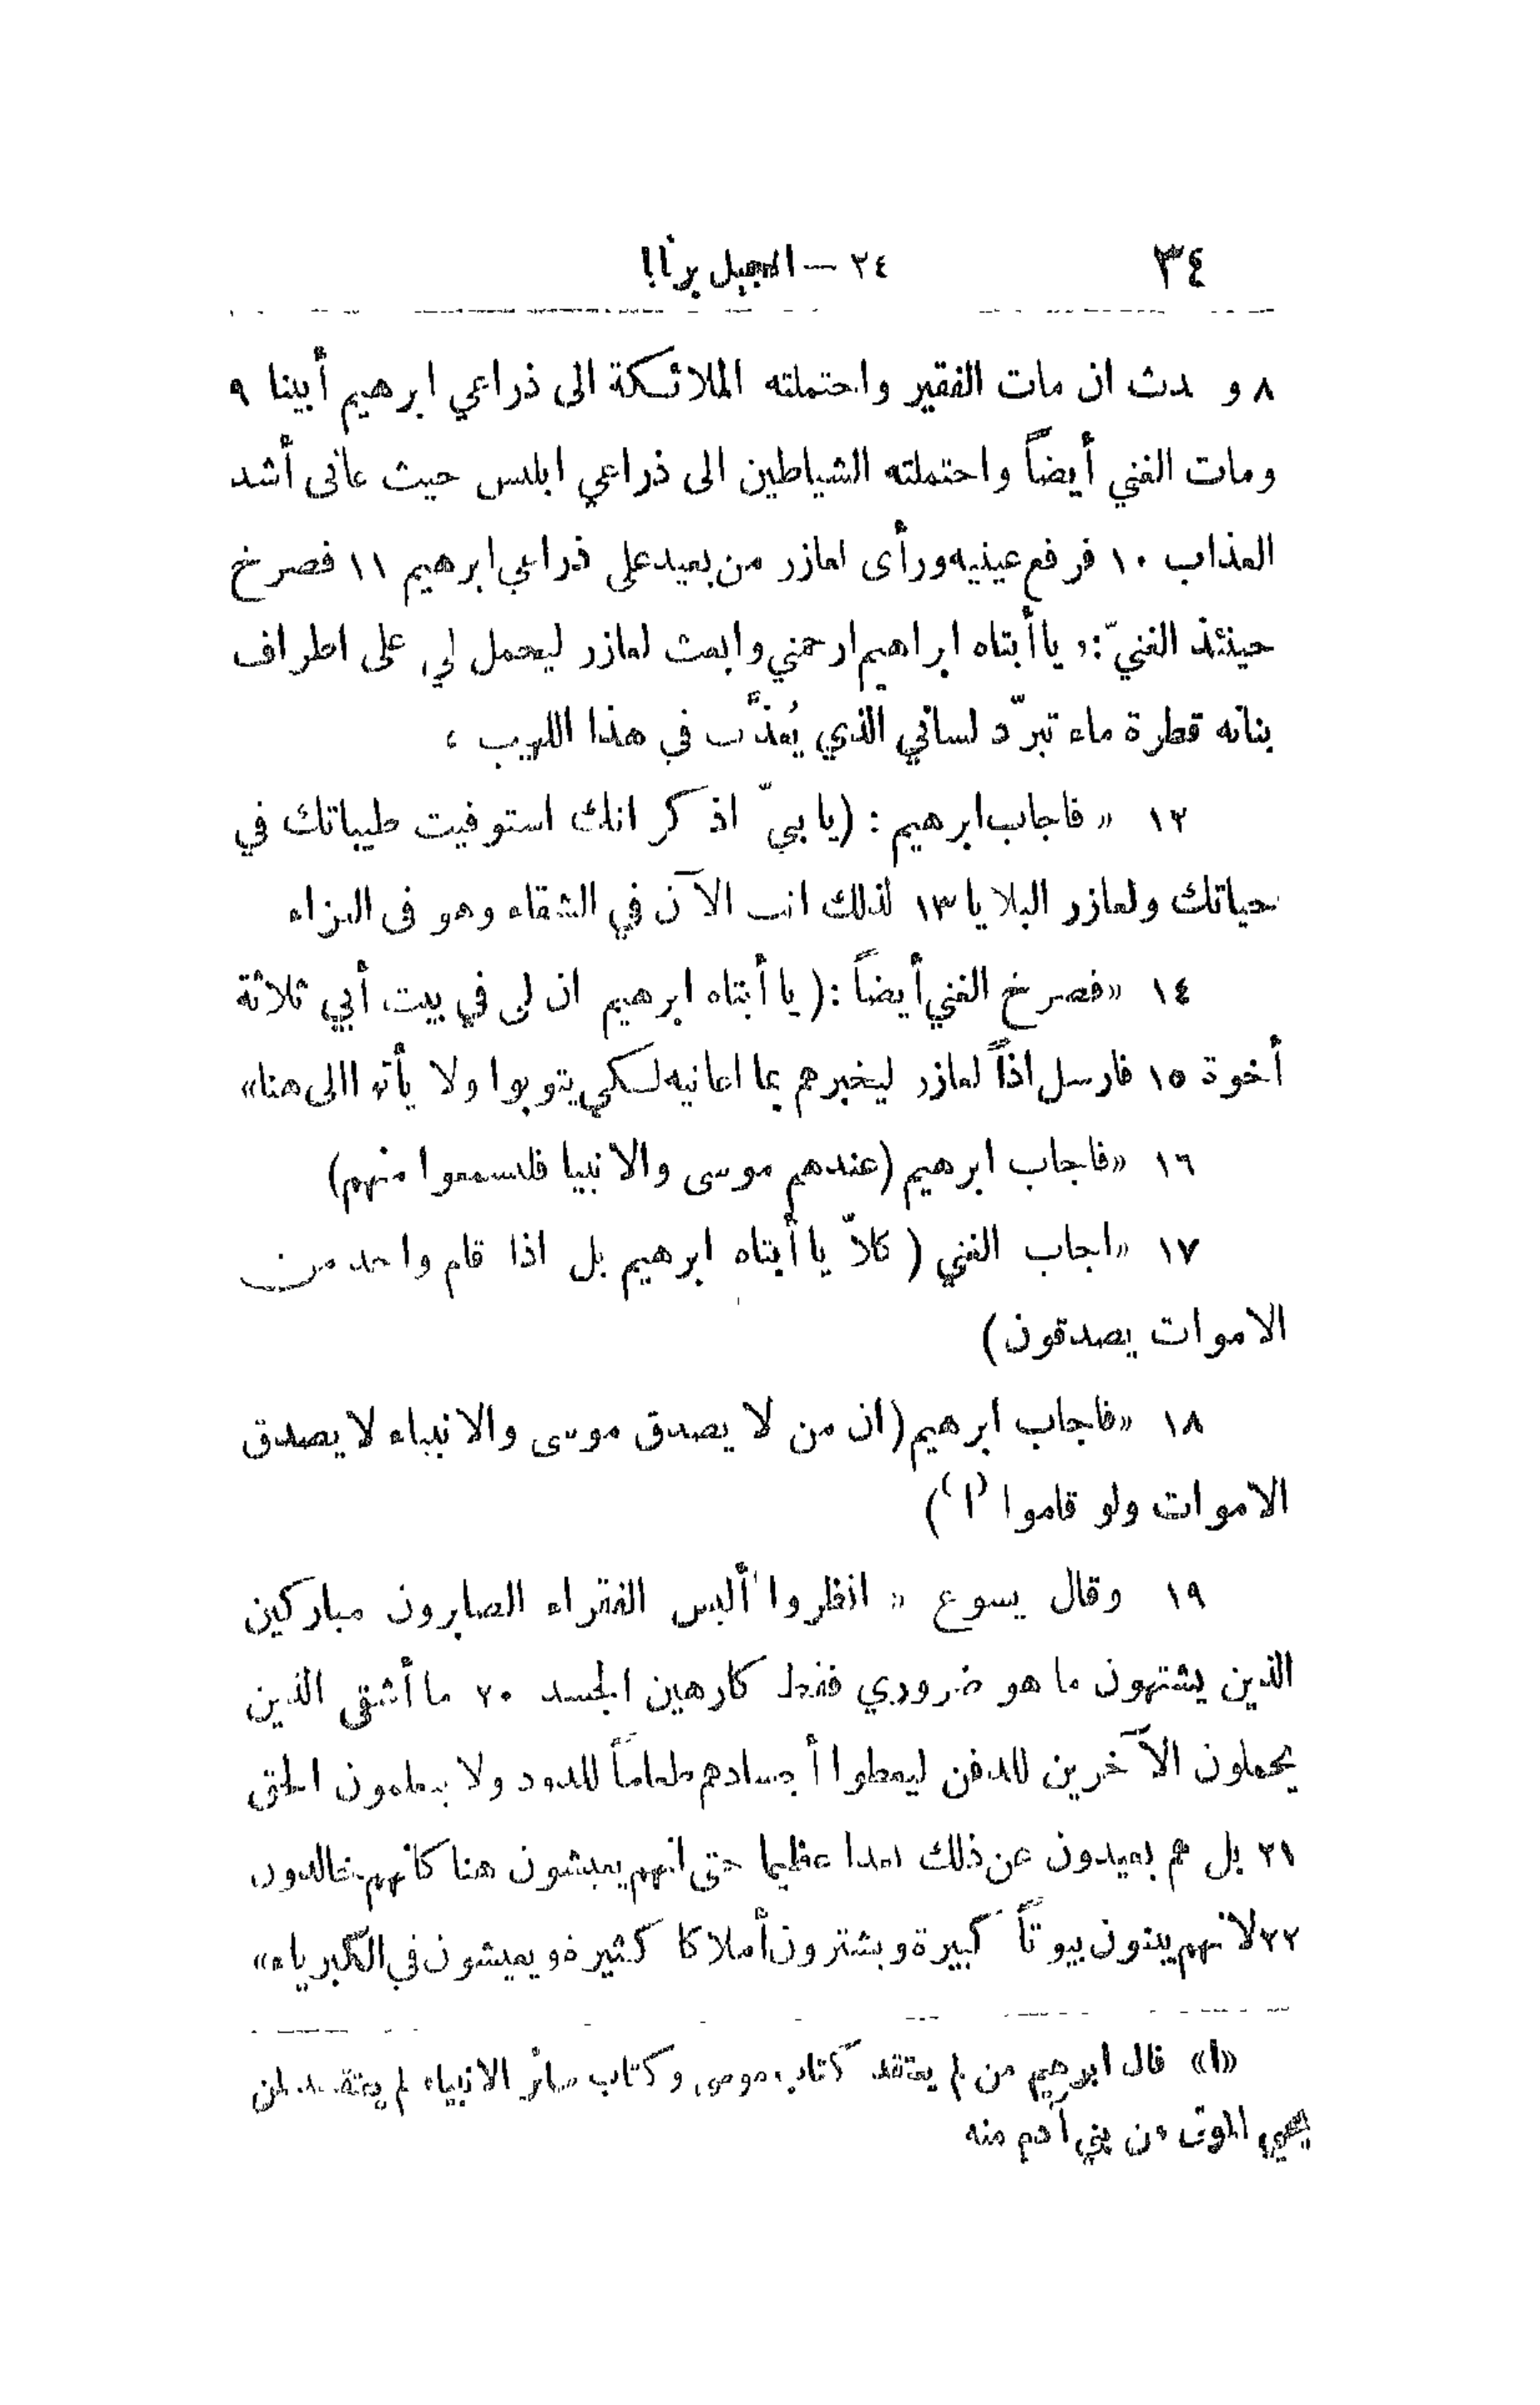 ٣٤ ٢٤ — انجيل برنابا
٨ و دث ان مات الفقير واحتملته الملائكة الى ذراعي ابرهيم أبينا ٩
ومات الغني أيضاً واحتملته الشياطين الى ذراعي ابليس حيث عانى أشد
العذاب ١٠ فرفع عينيه ورأى لعازر من بعيد على ذراعي ابرهيم ١١ فصرخ
حينئذ الغنيّ: « يا أبتاه ابراهيم ارحمني وابعث لعازر ليحمل لي على اطراف
بنانه قطرة ماء تبرّد لساني الذي يُعذَّب في هذا اللهيب »
١٢ « فاجاب ابرهيم : (يا بنيّ اذكر انك استوفيت طيباتك في
حياتك ولعازر البلايا ١٣ لذلك انت الآن في الشقاء وهو في العزاء
١٤ «فصرخ الغني أيضاً : ( يا أبتاه ابرهيم ان لى في بيت أبي ثلاثة
أخوة ١٥ فارسل اذاً لعازر ليخبرهم بما اعانيه لكي يتوبوا ولا يأتوا الى هنا»
١٦ «فاجاب ابرهيم (عندهم موسى والانبيا فليسمعوا منهم)
١٧ «اجاب الغني ( كلاّ يا أبتاه ابرهيم بل اذا قام واحد من
الاموات يصدقون)
١٨ «فاجاب ابرهيم (ان من لا يصدق موسى والانبياء لا يصدق
الاموات ولو قاموا (١) )
١٩ وقال يسوع « انظروا أليس الفقراء الصابرون مباركين
الذين يشتهون ما هو ضروري فقط كارهين الجسد ٢٠ ما أشقى الذين
يحملون الآخرين للدفن ليعطوا أجسادهم طعاماً للدود ولا يعلمون الحق
٢١ بل هم بعيدون عن ذلك بعدا عظيما حتى انهم يعيشون هنا كانهم خالدون
٢٢ لانهم يبنون بيوتاً كبيرة ويشترون أملاكا كثيرة ويعيشون في الكبرياء»
«١» قال ابرهيم من لم يعتقد كتاب موسى وكتاب سائر الانبياء لم يعتقد لمن
يحيي الموتى من بني آدم منه